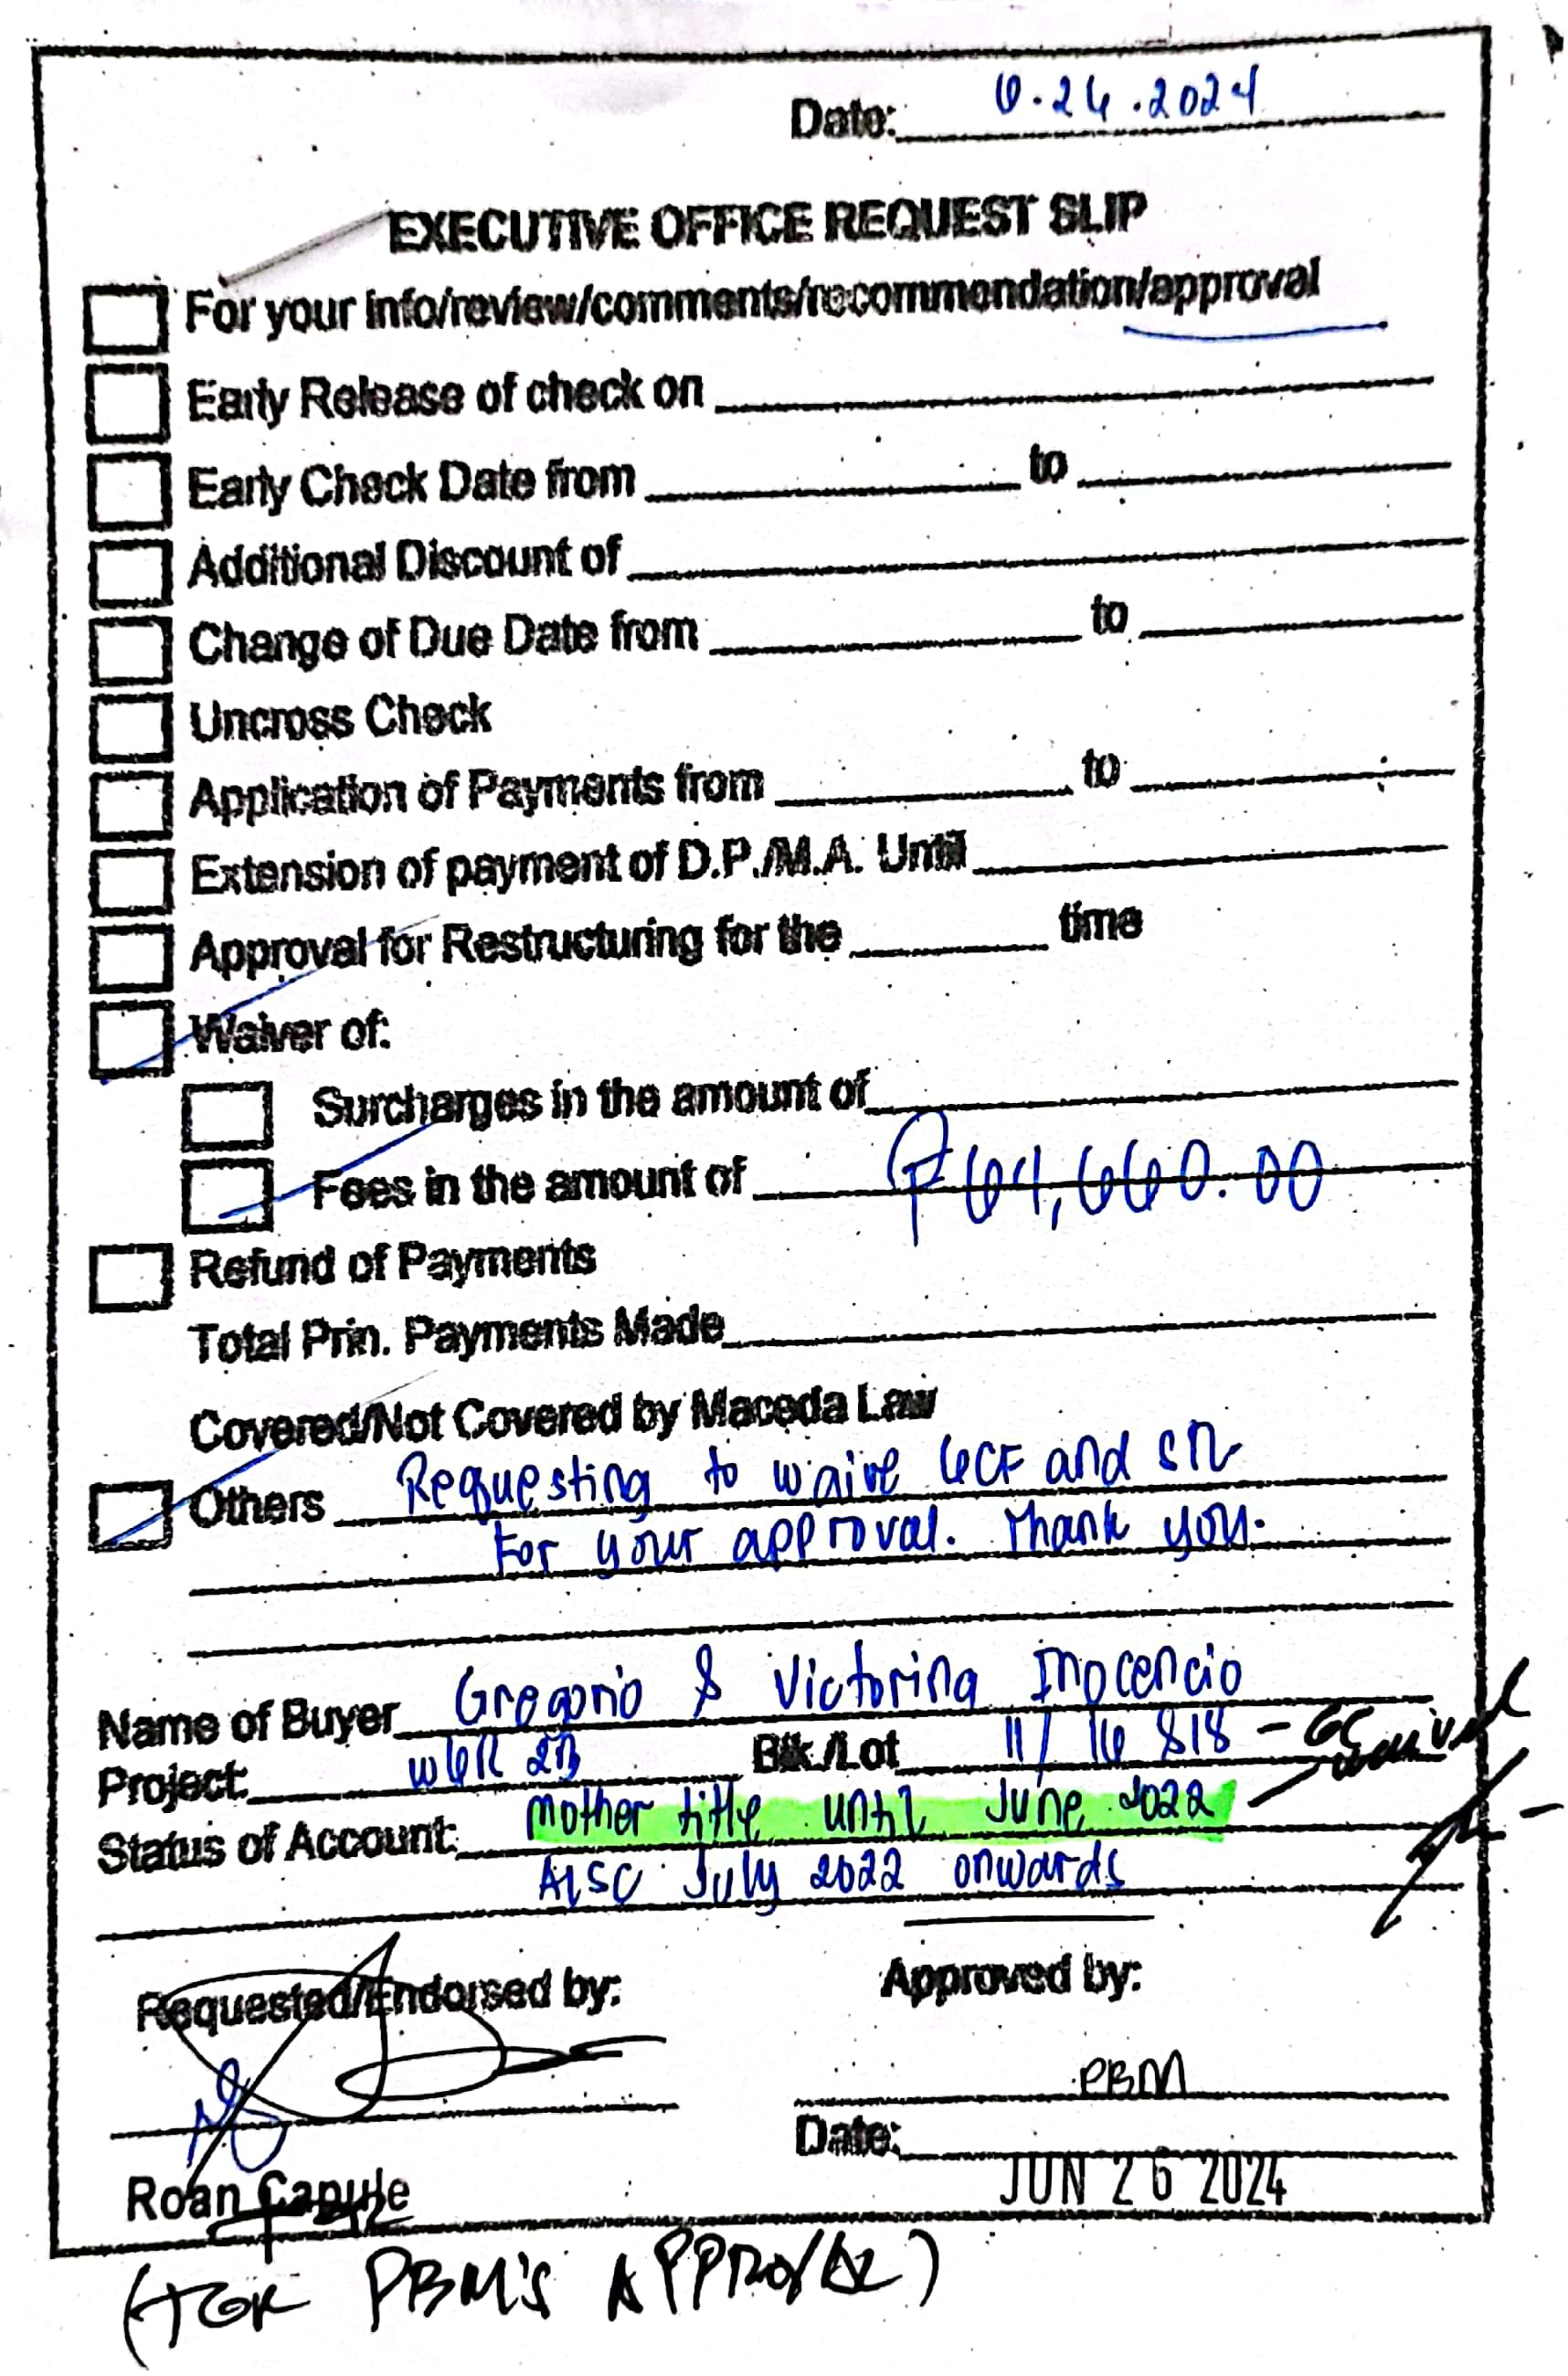 Date: 6.26.2024
EXECUTIVE OFFICE REQUEST SLIP
For your info/review/comments/recommendation/approval
Early Release of check on
Early Check Date from to
Additional Discount of
Change of Due Date from to
Uncross Check
Application of Payments from to
Extension of payment of D.P./M.A. Until
Approval for Restructuring for the time
Waiver of:
Surcharges in the amount of
Fees in the amount of ₱64,660.00
Refund of Payments
Total Prin. Payments Made
Covered/Not Covered by Maceda Law
Others Requesting to waive GCF and
For your approval. Thank you.
Name of Buyer Gregorio & Victorina Inocencio
Project: WGR 2B Blk./Lot 11/ 16 &18 - GC
Status of Account: Mother title until June 2022
AISC July 2022 onwards
Requested/Endorsed by: Approved by:
PBM
Date: JUN 26 2024
Roan Capule
(FOR PBM'S APPROVAL)